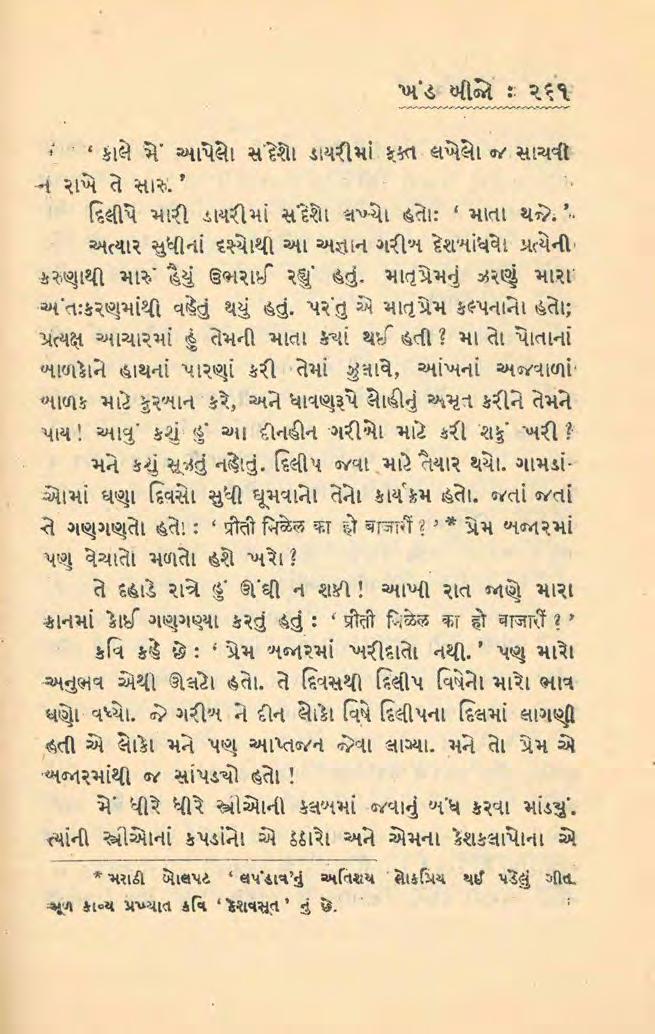 ખંડ બીજો : ૨૬૧
‘ કાલે મેં આપેલો સંદેશો ડાયરીમાં ફક્ત લખેલો જ સાચવી
ન રાખે તે સારું. ’
દિલીપે મારી ડાયરીમાં સંદેશો લખ્યો હતો: ‘ માતા થજે. ’
અત્યાર સુધીનાં દશ્યોથી આ અજ્ઞાન ગરીબ દેશબાંધવો પ્રત્યેની
કરુણાથી મારું હૈયું ઉભરાઈ રહ્યું હતું. માતૃપ્રેમનું ઝરણું મારા
અંતઃકરણમાંથી વહેતું થયું હતું. પરંતુ એ માતૃપ્રેમ કલ્પનાનો હતો;
પ્રત્યક્ષ આચારમાં હું તેમની માતા ક્યાં થઈ હતી ? મા તો પોતાનાં
બાળકોને હાથનાં પારણાં કરી તેમાં ઝુલાવે, આંખનાં અજવાળાં
બાળક માટે કુરબાન કરે, અને ધાવણરૂપે લોહીનું અમૃત કરીને તેમને
પાય ! આવું કશું હું આ દીનહીન ગરીબો માટે કરી શકું ખરી ?
મને કશું સૂઝતું નહોતું. દિલીપ જવા માટે તૈયાર થયો. ગામડાં-
ઓમાં ઘણા દિવસો સુધી ઘૂમવાનો તેનો કાર્યક્રમ હતો. જતાં જતાં
તે ગણગણતો હતો : ‘ प्रीती मिळेल का हो बाजारीं ? ’ * પ્રેમ બજારમાં
પણ વેચાતો મળતો હશે ખરો ?
તે દહાડે રાત્રે હું ઊંઘી ન શકી ! આખી રાત જાણે મારા
કાનમાં કોઈ ગણગણ્યા કરતું હતું : ‘ प्रीती मिळेल का हो बाजारीं ? ’
કવિ કહે છે : ‘ પ્રેમ બજારમાં ખરીદાતો નથી. ’ પણ મારો
અનુભવ એથી ઊલટો હતો. તે દિવસથી દિલીપ વિષેનો મારો ભાવ
ઘણો વધ્યો. જે ગરીબ ને દીન લોકો વિષે દિલીપના દિલમાં લાગણી
હતી એ લોકો મને પણ આપ્તજન જેવા લાગ્યા. મને તો પ્રેમ એ
બજારમાંથી જ સાંપડ્યો હતો !
મેં ધીરે ધીરે સ્ત્રીઓની ક્લબમાં જવાનું બંધ કરવા માંડ્યું.
ત્યાંની સ્ત્રીઓનાં કપડાંનો એ ઠઠારો અને એમના કેશકલાપોના એ
* મરાઠી બોલપટ ‘ લપંડાવ’નું અતિશય લોકપ્રિય થઈ પડેલું ગીત.
મૂળ કાવ્ય પ્રખ્યાત કવિ ‘ કેશવસૂત ’ નું છે.